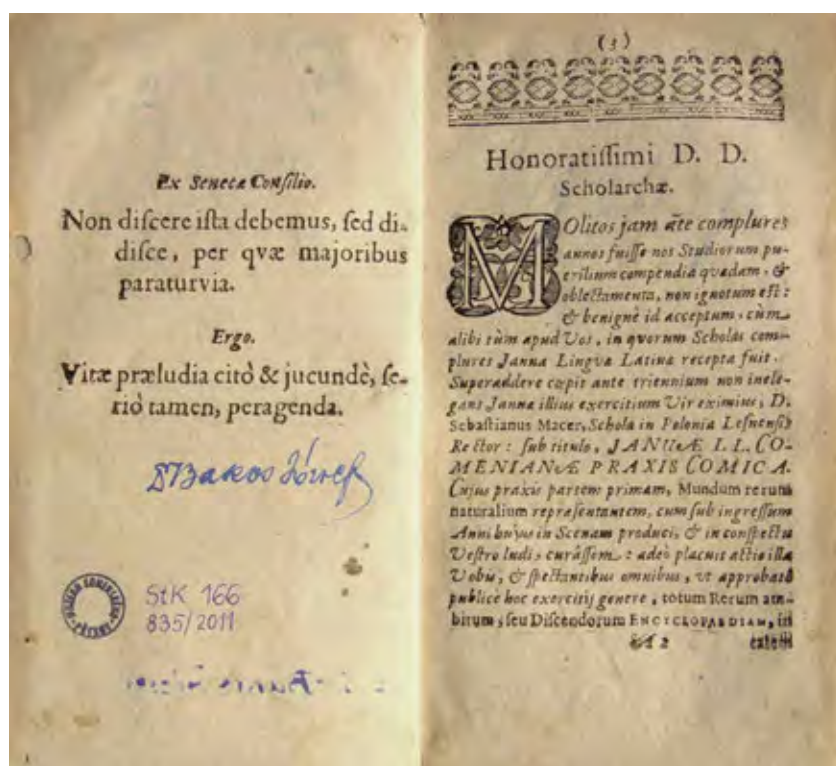 Ex Senecæ Consilio.
Non discere ista debemus, sed di-
disce, per qvæ majoribus
paraturvia.
Ergo.
Vitæ præludia citò & jucundè, se-
riò tamen, peragenda.
StK 166
835/2011
(3)
Honoratissimi D. D.
Scholarchæ.
MOlitos jam āte complures
annos fuisse nos Studiorum pu-
erilium compendia quædam, &
oblectamenta, non ignotum est:
& benignè id acceptum, cùm
alibi tùm apud Vos, in qvorum Scholas com-
plures Janua Lingvæ Latinæ recepta fuit.
Superaddere cœpit ante triennium non inele-
gans Januæ illius exercitium Vir eximius, D.
Sebastianus Macer, Scholæ in Polonia Lesnensis
Rector: sub titulo, JANUÆ L L. CO-
MENIANÆ PRAXIS COMICA.
Cujus praxis partem primam, Mundum rerum
naturalium repræsentantem, cum sub ingressum
Anni hujus in Scenam produci, & in conspectu
Vestro ludi, curâssem: adeò placuit actio illa
Vobis, & spectantibus omnibus, vt approbatô
publicè hoc exercitij genere, totum Rerum am-
bitum, seu Discendorum ENCYCLOPÆDIAM, in
A 2 eadem